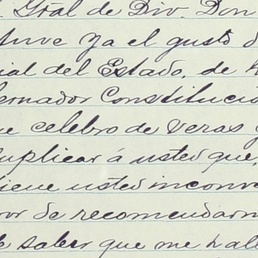 Gral de Div. Don
tuve ya el gusto d
ial del Estado, de h
ernador Constitucio
ue celebro de veras y
suplicar á usted que,
tiene usted inconve
or de recomendarm
de saber que me hall